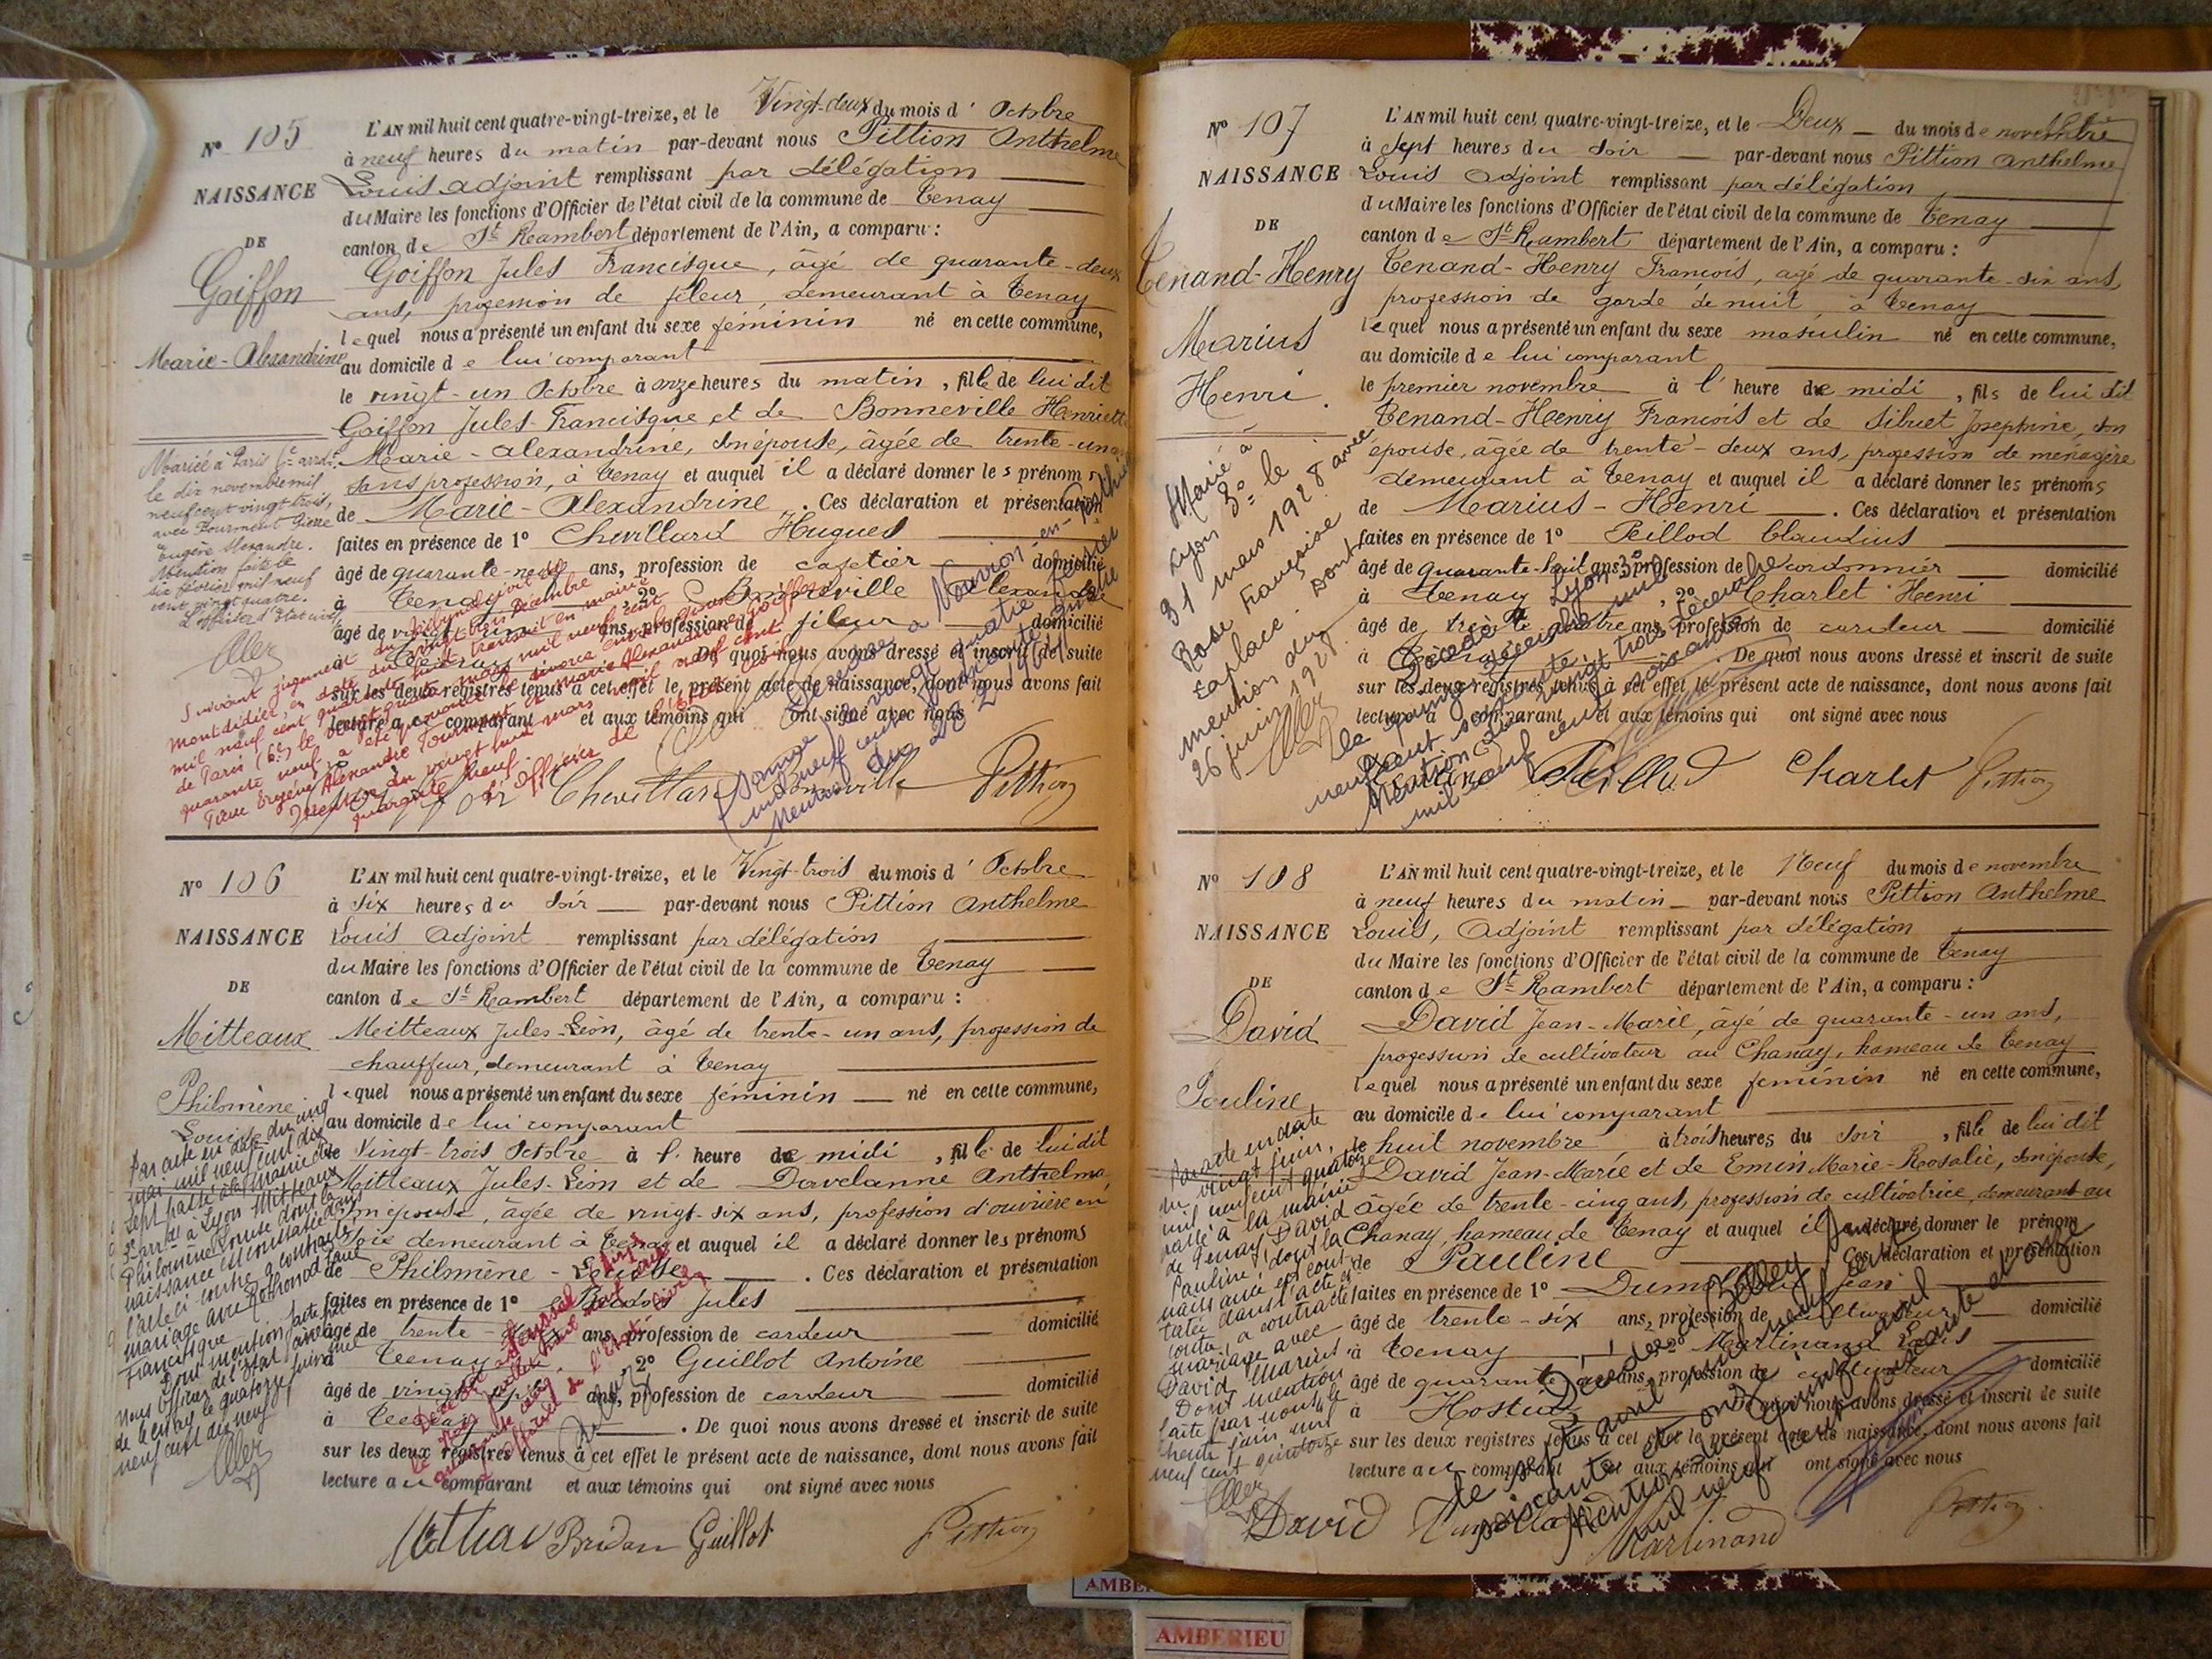 Nº 105
NAISSANCE
DE
Goiffon
Marie-Alexandrine
L'AN mil huit cent quatre-vingt-treize, et le Vingt-deux du mois d' Octobre
à neuf heures du matin par-devant nous Pittion Anthelme
Louis adjoint remplissant par délégation
du Maire les fonctions d'Officier de l'état civil de la commune de Tenay
canton de St Rambert département de l'Ain, a comparu :
Goiffon Jules Francisque, âgé de quarante-deux
ans, profession de fileur, demeurant à Tenay
lequel nous a présenté un enfant du sexe féminin né en cette commune,
au domicile de lui comparant
le vingt-un Octobre à onze heures du matin, fille de lui dit
Goiffon Jules-Francisque et de Bonneville Henriette
Marie-alexandrine, son épouse, âgée de trente-un
sans profession, à Tenay et auquel il a déclaré donner les prénoms
de Marie-Alexandrine. Ces déclaration et présentation
faites en présence de 1º Chevillard Hugues
âgé de quarante-neuf ans, profession de domicilié
à Tenay, 2º Bonneville
âgé de ans, profession de fileur domicilié
à De quoi nous avons dressé et inscrit de suite
sur les deux registres tenus à cet effet le présent acte de naissance, dont nous avons fait
lecture au comparant et aux témoins qui ont signé avec nous
Mariée à Paris 6e arrdt
le dix novembre mil
neuf cent vingt trois,
avec Fourment Pierre
Eugène Alexandre.
Mention faite le
six février mil neuf
cent vingt quatre.
L'officier d'Etat civil
Suivant jugement du tribunal civil de
Montdidier, en date du vingt trois décembre
mil neuf cent quarante huit, transcrit en mairie
de Paris (6e) le mil neuf cent
quarante neuf, a été prononcé le divorce entre
Pierre Eugène Alexandre Fourment et Marie Alexandrine Goiffon
Mention du vingt huit mars mil neuf cent
quarante neuf. L'officier de l'état civil
Chevillard Bonneville Pittion
Nº 106
NAISSANCE
DE
Mitteaux
Philomène
Louise
L'AN mil huit cent quatre-vingt-treize, et le Vingt-trois du mois d' Octobre
à six heures du soir par-devant nous Pittion Anthelme
Louis Adjoint remplissant par délégation
du Maire les fonctions d'Officier de l'état civil de la commune de Tenay
canton de St Rambert département de l'Ain, a comparu :
Mitteaux Jules-Léon, âgé de trente-un ans, profession de
chauffeur, demeurant à Tenay
lequel nous a présenté un enfant du sexe féminin né en cette commune,
au domicile de lui comparant
le Vingt-trois Octobre à l' heure de midi, fille de lui dit
Mitteaux Jules-Léon et de Davelanne Anthelma,
son épouse, âgée de vingt-six ans, profession d'ouvrière en
soie demeurant à Tenay et auquel il a déclaré donner les prénoms
de Philomène-Louise. Ces déclaration et présentation
faites en présence de 1º Jules
âgé de trente- ans, profession de cardeur domicilié
à Tenay, 2º Guillot Antoine
âgé de vingt ans, profession de cardeur domicilié
à Tenay. De quoi nous avons dressé et inscrit de suite
sur les deux registres tenus à cet effet le présent acte de naissance, dont nous avons fait
lecture au comparant et aux témoins qui ont signé avec nous
Par acte en date du cinq
mai mil neuf cent dix
sept passé à la mairie du
arrdt à Lyon Mitteaux
Philomène Louise dont la
naissance est constatée dans
l'acte ci contre a contracté
mariage avec Rothonod Paul
Francisque
Dont mention faite par
Nous Officier de l'Etat civil
de Tenay le quatorze juin mil
neuf cent dix neuf
Guillot Pittion
Nº 107
NAISSANCE
DE
Tenand-Henry
Marius
Henri
L'AN mil huit cent quatre-vingt-treize, et le Deux du mois de novembre
à Sept heures du soir par-devant nous Pittion Anthelme
Louis Adjoint remplissant par délégation
du Maire les fonctions d'Officier de l'état civil de la commune de Tenay
canton de St Rambert département de l'Ain, a comparu :
Tenand-Henry François, âgé de quarante-six ans,
profession de garde de nuit, à Tenay
lequel nous a présenté un enfant du sexe masculin né en cette commune,
au domicile de lui comparant
le premier novembre à l' heure de midi, fils de lui dit
Tenand-Henry François et de Sibuet Josephine, son
épouse, âgée de trente-deux ans, profession de ménagère
demeurant à Tenay et auquel il a déclaré donner les prénoms
de Marius-Henri. Ces déclaration et présentation
faites en présence de 1º Peillod Claudius
âgé de quarante-huit ans, profession de cordonnier domicilié
à Tenay, 2º Charlet Henri
âgé de trente quatre ans, profession de cardeur domicilié
à Tenay. De quoi nous avons dressé et inscrit de suite
sur les deux registres tenus à cet effet le présent acte de naissance, dont nous avons fait
lecture au comparant et aux témoins qui ont signé avec nous
Marié à
Lyon 3º le
31 mars 1928 avec
Rose Françoise
Laplace. Dont
mention du
26 juin 1928
Décédé à Lyon 3º
le quinze décembre mil
neuf cent soixante
Mention du vingt trois décembre
mil neuf cent soixante
Peillod Charlet Pittion
Nº 108
NAISSANCE
DE
David
Pauline
L'AN mil huit cent quatre-vingt-treize, et le Neuf du mois de novembre
à neuf heures du matin par-devant nous Pittion Anthelme
Louis, Adjoint remplissant par délégation
du Maire les fonctions d'Officier de l'état civil de la commune de Tenay
canton de St Rambert département de l'Ain, a comparu :
David Jean-Marie, âgé de quarante-un ans,
profession de cultivateur au Chanay, hameau de Tenay
lequel nous a présenté un enfant du sexe féminin né en cette commune,
au domicile de lui comparant
le huit novembre à trois heures du soir, fille de lui dit
David Jean-Marie et de Emin Marie-Rosalie, son épouse,
âgée de trente-cinq ans, profession de cultivatrice, demeurant au
Chanay, hameau de Tenay et auquel il a déclaré donner le prénom
de Pauline. Ces déclaration et présentation
faites en présence de 1º Jean
âgé de trente-six ans, profession de cultivateur domicilié
à Tenay, 2º Martinand Louis
âgé de quarante ans, profession de cultivateur domicilié
à De quoi nous avons dressé et inscrit de suite
sur les deux registres tenus à cet effet le présent acte de naissance, dont nous avons fait
lecture au comparant et aux témoins qui ont signé avec nous
Par acte en date
du vingt juin,
mil neuf cent quatorze
passé à la mairie
de Tenay, David
Pauline, dont la
naissance est cons-
tatée dans l'acte ci
contre, a contracté
mariage avec
David Marius
Dont mention
faite par nous le
trente juin mil
neuf cent quatorze
le sept avril mil neuf cent
soixante et onze
Mention du quinze avril
mil neuf cent soixante et onze
David Martinand Pittion
AMBERIEU